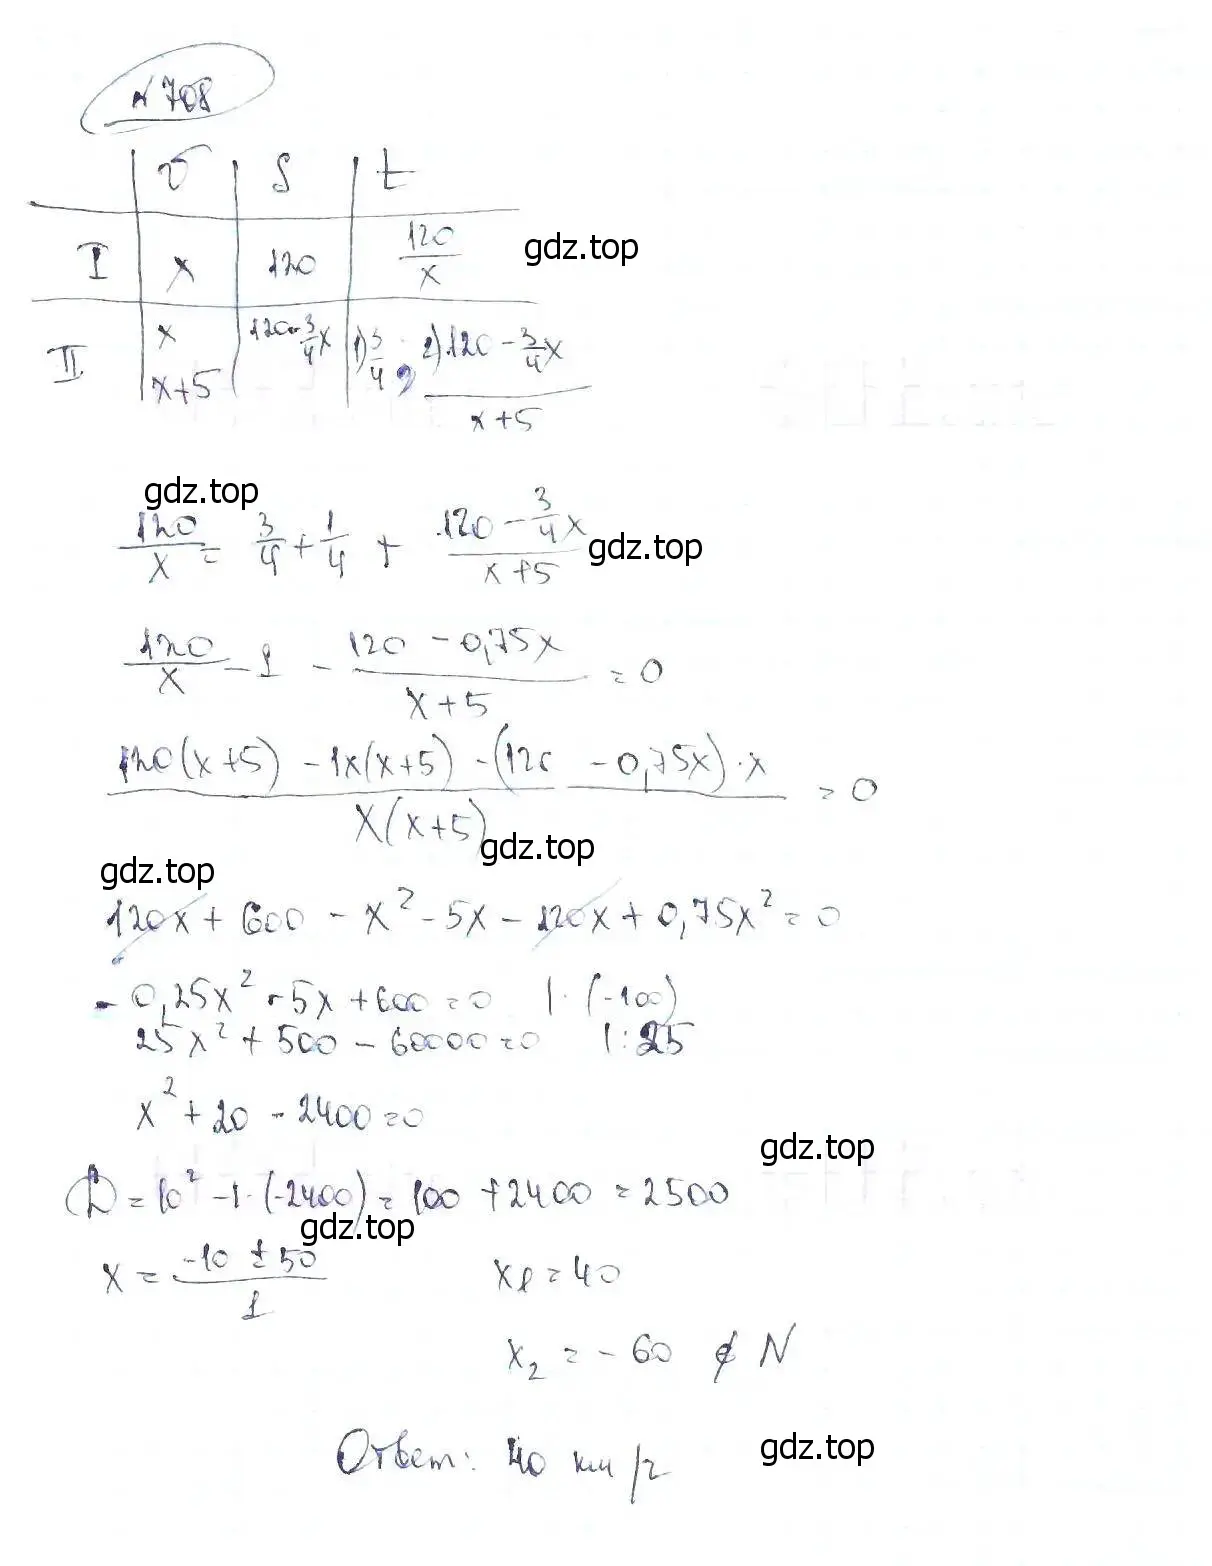 № 708
v S t
I x 120 120/x gdz.top
II x 120-3/4x 1) 3/4, 2) 120-3/4x
x+5 x+5
gdz.top
120/x = 3/4 + 1/4 + (120 - 3/4x)/(x+5) gdz.top
120/x - 1 - (120 - 0,75x)/(x+5) = 0
(120(x+5) - 1x(x+5) - (120 - 0,75x)·x)/(x(x+5)) = 0
gdz.top
gdz.top
120x + 600 - x² - 5x - 120x + 0,75x² = 0
- 0,25x² - 5x + 600 = 0 |·(-100)
25x² + 500 - 60000 = 0 |:25
x² + 20 - 2400 = 0
gdz.top
D = 10² - 1·(-2400) = 100 + 2400 = 2500
gdz.top
x = (-10 ± 50)/1 x1 = 40
x₂ = - 60 ∉ N
Ответ: 40 км/г gdz.top